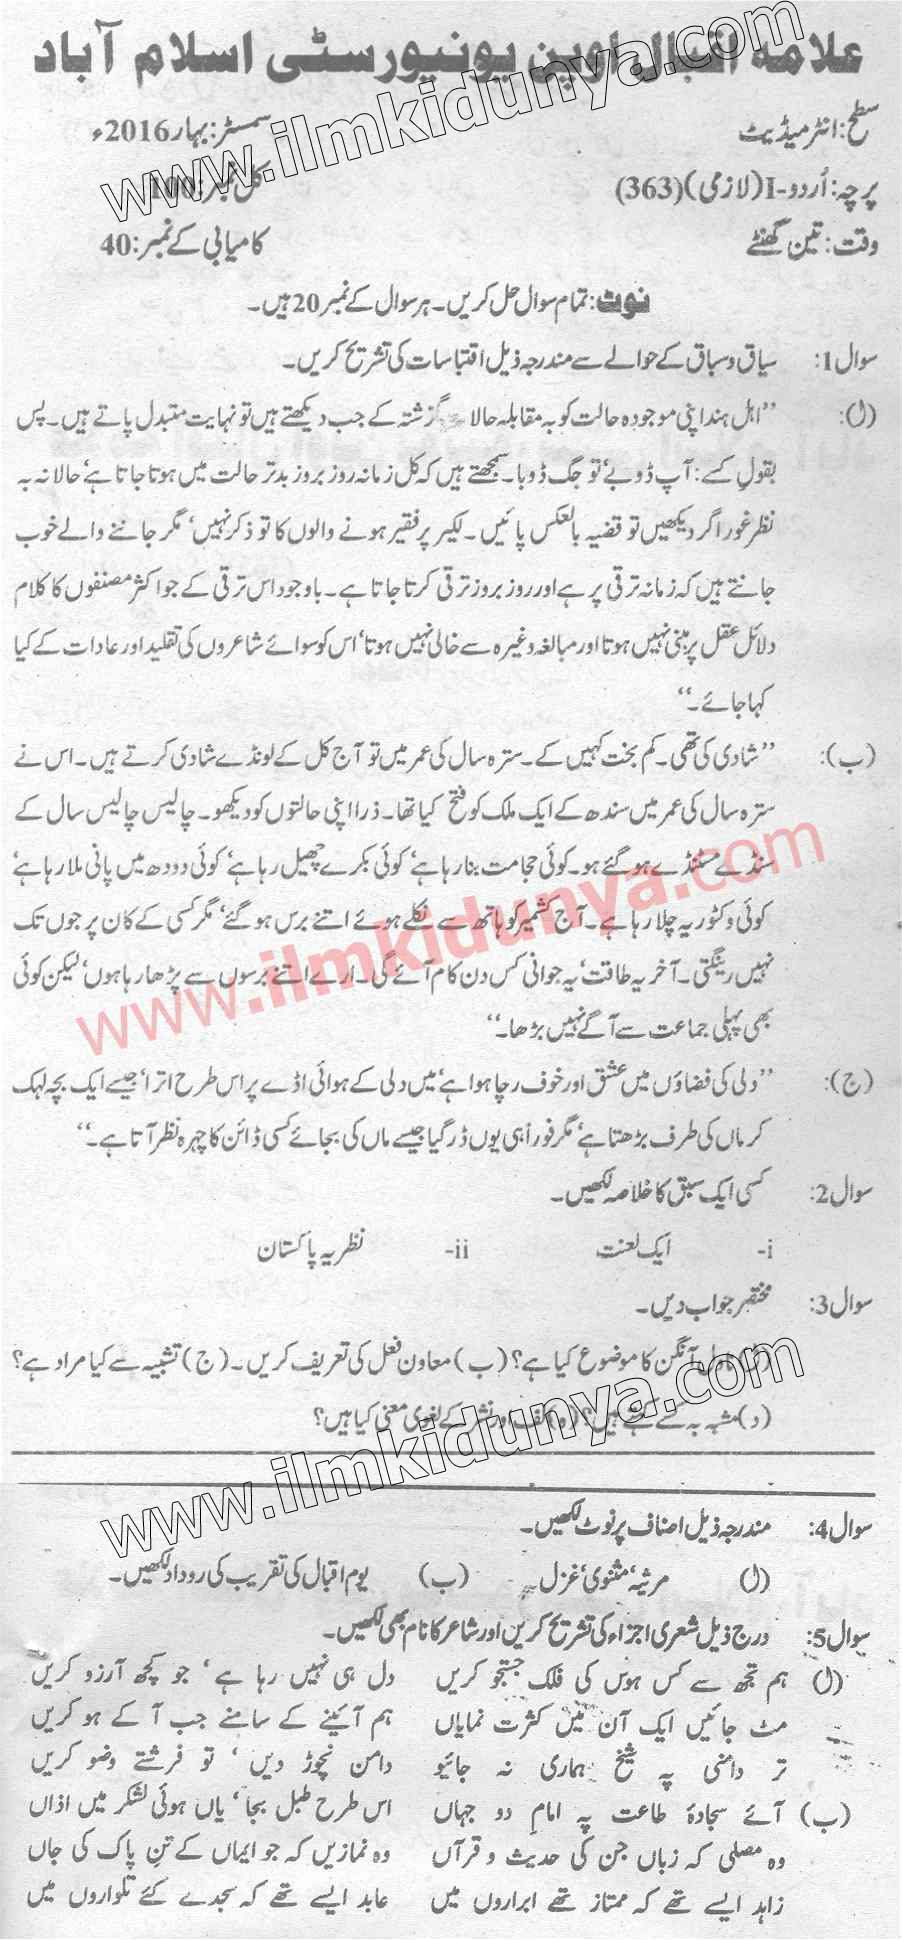 علامہ اقبال اوپن یونیورسٹی اسلام آباد
سطح: انٹرمیڈیٹ سمسٹر: بہار 2016ء
پرچہ: اُردو-I (لازمی) (363) کل نمبر: 100
وقت: تین گھنٹے کامیابی کے نمبر: 40
نوٹ: تمام سوال حل کریں۔ ہر سوال کے نمبر 20 ہیں۔
سوال 1: سیاق و سباق کے حوالے سے مندرجہ ذیل اقتباسات کی تشریح کریں۔
(ل): ”اہل ہند اپنی موجودہ حالت کو بہ مقابلہ حالا گزشتہ کے جب دیکھتے ہیں تو نہایت متبدل پاتے ہیں۔ پس
بقول کسے: آپ ڈوبے‘ تو جگ ڈوبا۔ سمجھتے ہیں کہ کل زمانہ روز بروز بدتر حالت میں ہوتا جاتا ہے‘ حالانہ بہ
نظر غور اگر دیکھیں تو قضیہ بالعکس پائیں۔ لکیر پر فقیر ہونے والوں کا تو ذکر نہیں‘ مگر جاننے والے خوب
جانتے ہیں کہ زمانہ ترقی پر ہے اور روز بروز ترقی کرتا جاتا ہے۔ باوجود اس ترقی کے جو اکثر مصنفوں کا کلام
دلائل عقل پر مبنی نہیں ہوتا اور مبالغہ وغیرہ سے خالی نہیں ہوتا‘ اس کو سوائے شاعروں کی تقلید اور عادات کے کیا
کہا جائے۔“
(ب): ”شادی کی تھی۔ کم بخت کہیں کے۔ سترہ سال کی عمر میں تو آج کل کے لونڈے شادی کرتے ہیں۔ اس نے
سترہ سال کی عمر میں سندھ کے ایک ملک کو فتح کیا تھا۔ ذرا اپنی حالتوں کو دیکھو۔ چالیس چالیس سال کے
سنڈے مسٹنڈے ہو گئے ہو۔ کوئی حجامت بنا رہا ہے‘ کوئی بکرے چھیل رہا ہے‘ کوئی دودھ میں پانی ملا رہا ہے‘
کوئی وکٹوریہ چلا رہا ہے۔ آج کشمیر کو ہاتھ سے نکلے ہوئے اتنے برس ہو گئے‘ مگر کسی کے کان پر جوں تک
نہیں رینگتی۔ آخر یہ طاقت‘ یہ جوانی کس دن کام آئے گی۔ ارے اتنے برسوں سے پڑھا رہا ہوں‘ لیکن کوئی
بھی پہلی جماعت سے آگے نہیں بڑھا۔“
(ج): ”دلی کی فضاؤں میں عشق اور خوف رچا ہوا ہے‘ میں دلی کے ہوائی اڈے پر اس طرح اترا‘ جیسے ایک بچہ لہک
کر ماں کی طرف بڑھتا ہے‘ مگر فوراً ہی یوں ڈر گیا جیسے ماں کی بجائے کسی ڈائن کا چہرہ نظر آتا ہے۔“
سوال 2: کسی ایک سبق کا خلاصہ لکھیں۔
i- ایک لعنت ii- نظریہ پاکستان
سوال 3: مختصر جواب دیں۔
(ل) ناول آنگن کا موضوع کیا ہے؟ (ب) معاون فعل کی تعریف کریں۔ (ج) تشبیہ سے کیا مراد ہے؟
(د) مشبہ بہ کسے کہتے ہیں؟ (ہ) لف اور نشر کے لغوی معنی کیا ہیں؟
سوال 4: مندرجہ ذیل اصناف پر نوٹ لکھیں۔
(ل) مرثیہ‘ مثنوی‘ غزل (ب) یوم اقبال کی تقریب کی روداد لکھیں۔
سوال 5: درج ذیل شعری اجزاء کی تشریح کریں اور شاعر کا نام بھی لکھیں۔
(ل) ہم تجھ سے کس ہوس کی فلک جستجو کریں دل ہی نہیں رہا ہے‘ جو کچھ آرزو کریں
مٹ جائیں ایک آن میں کثرت نمایاں ہم آئینے کے سامنے جب آ کے ہو کریں
تر دامنی پہ شیخ ہماری نہ جائیو دامن نچوڑ دیں‘ تو فرشتے وضو کریں
(ب) آئے سجادۂ طاعت پہ امامِ دو جہاں اس طرح طبل بجا‘ یاں ہوئی لشکر میں اذاں
وہ مصلی کہ زباں جن کی حدیث و قرآں وہ نمازیں کہ جو ایماں کے تنِ پاک کی جاں
زاہد ایسے تھے کہ ممتاز تھے ابراروں میں عابد ایسے تھے کہ سجدے کئے تلواروں میں
www.ilmkidunya.com
www.ilmkidunya.com
www.ilmkidunya.com